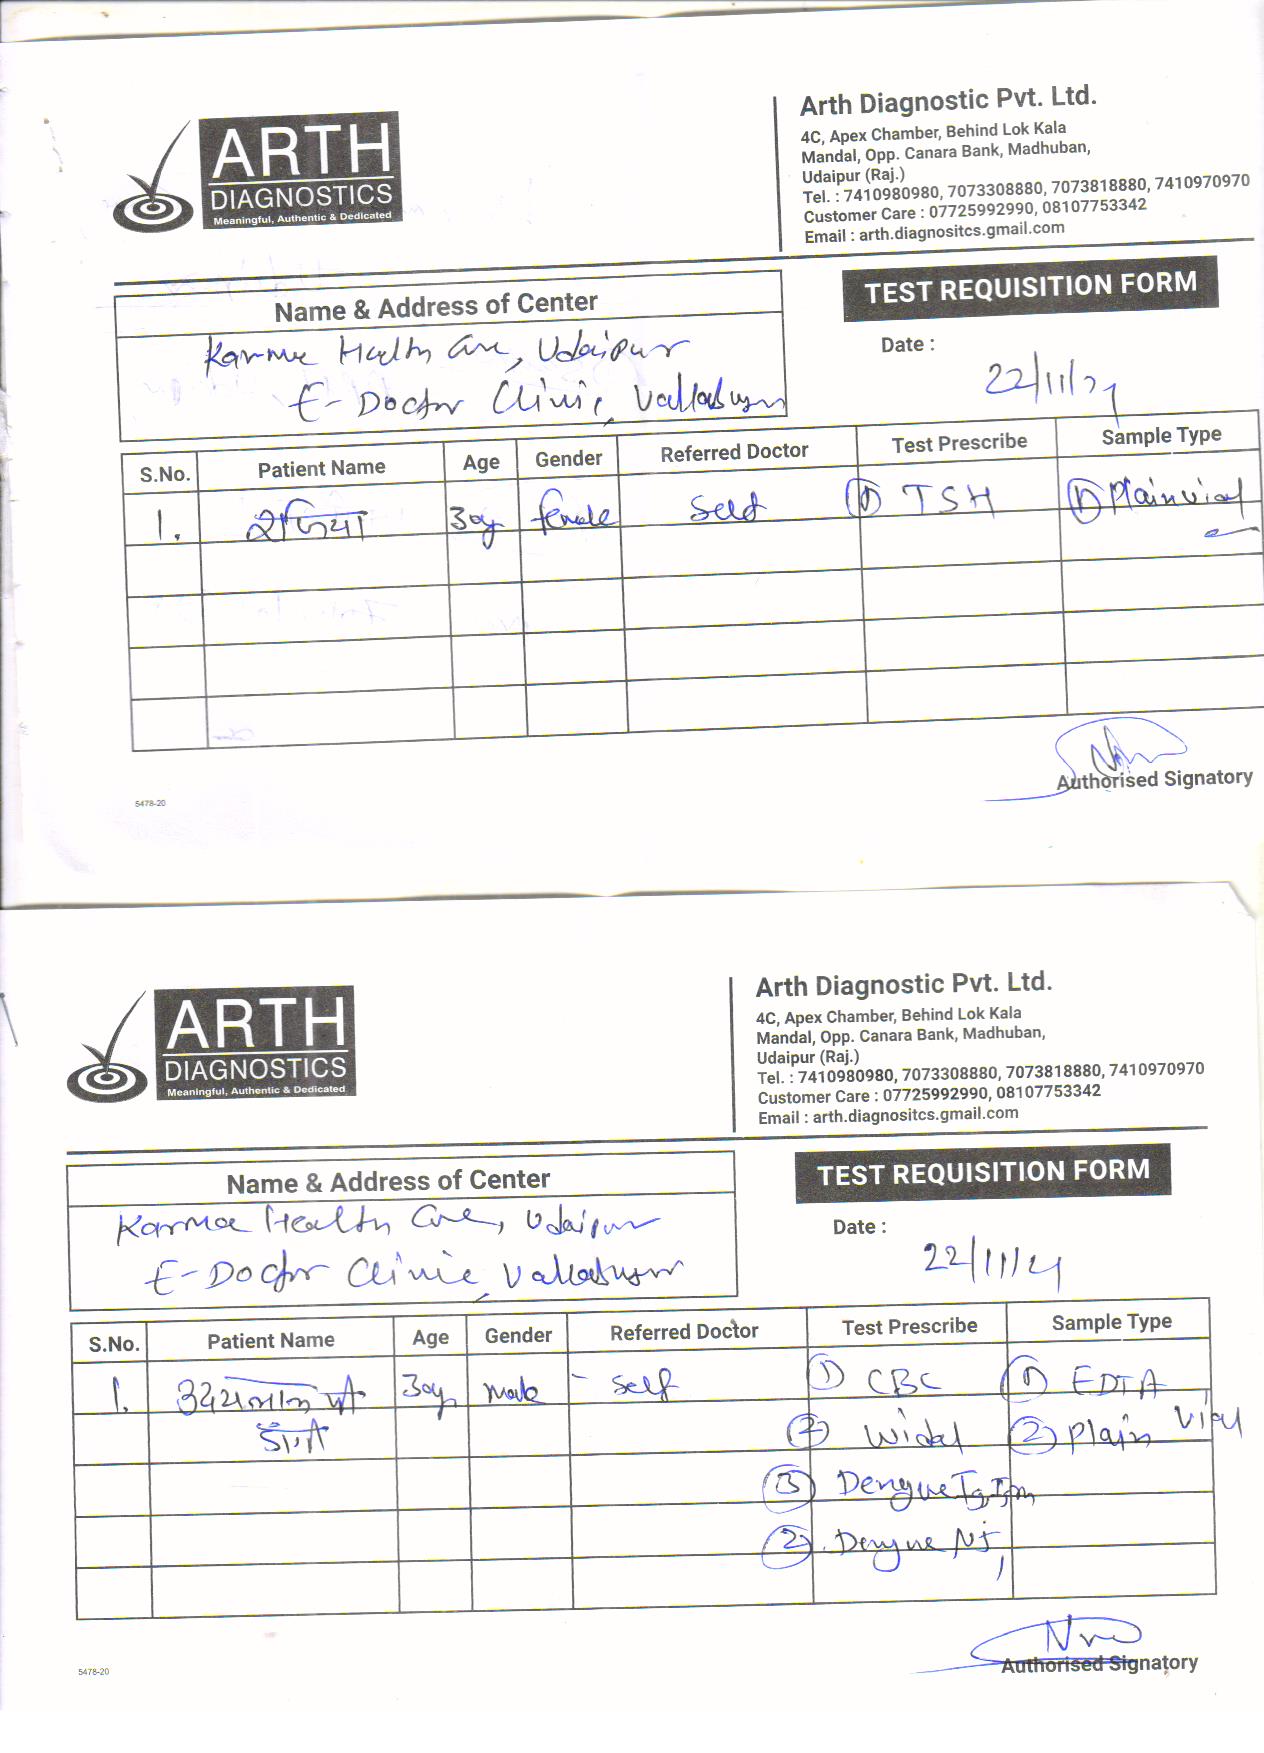 ARTH
DIAGNOSTICS
Meaningful, Authentic & Dedicated
Arth Diagnostic Pvt. Ltd.
4C, Apex Chamber, Behind Lok Kala
Mandal, Opp. Canara Bank, Madhuban,
Udaipur (Raj.)
Tel. : 7410980980, 7073308880, 7073818880, 7410970970
Customer Care : 07725992990, 08107753342
Email : arth.diagnositcs.gmail.com
Name & Address of Center
TEST REQUISITION FORM
Karma Health Care, Udaipur
E-Doctor Clinic, Vallabhpura
Date :
22/11/21
S.No. Patient Name Age Gender Referred Doctor Test Prescribe Sample Type
1. 30y female Self ① TSH ① Plain vial
Authorised Signatory
5478-20
ARTH
DIAGNOSTICS
Meaningful, Authentic & Dedicated
Arth Diagnostic Pvt. Ltd.
4C, Apex Chamber, Behind Lok Kala
Mandal, Opp. Canara Bank, Madhuban,
Udaipur (Raj.)
Tel. : 7410980980, 7073308880, 7073818880, 7410970970
Customer Care : 07725992990, 08107753342
Email : arth.diagnositcs.gmail.com
Name & Address of Center
TEST REQUISITION FORM
Karma Health Care, Udaipur
E-Doctor Clinic,
Date :
22/11/21
S.No. Patient Name Age Gender Referred Doctor Test Prescribe Sample Type
1. 30y male - Self ① CBC ① EDTA
② Widal ② Plain Vial
③ Dengue IgG, IgM
② Dengue NS1
Authorised Signatory
5478-20